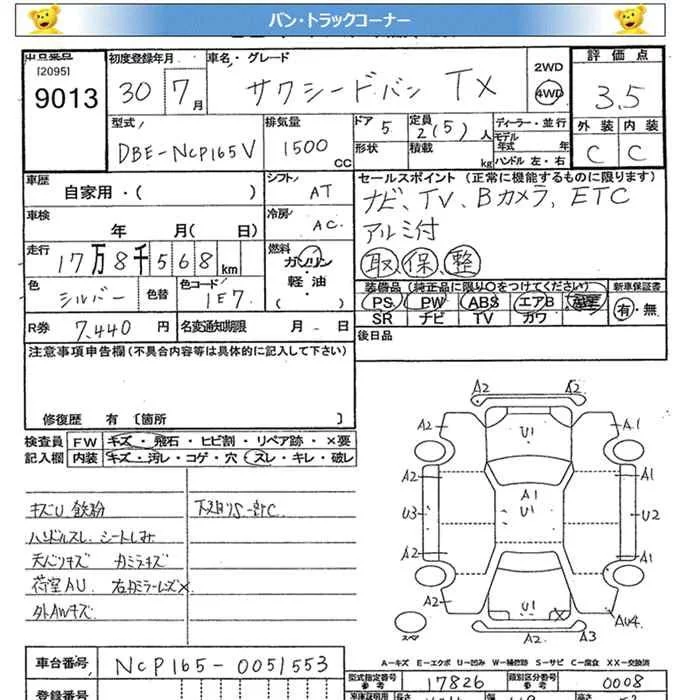 バン・トラックコーナー
出品番号
[2095]
9013
初度登録年月
30 7月
車名・グレード
サクシードバン TX
2WD
4WD
評価点
3.5
外装 内装
C C
型式
DBE-NCP165V
排気量
1500 CC
ドア
5
形状
定員
2(5)人
積載 kg
ディーラー・並行
モデル年式 年
ハンドル 左・右
車歴
自家用・( )
シフト
AT
車検
年 月( 日)
冷房
AC
走行
17万8千568km
燃料
ガソリン
軽油
色
シルバー
色替
色コード
1E7
R券
7,440円
名変通知期限 月 日
セールスポイント(正常に機能するものに限ります)
ナビ、TV、Bカメラ、ETC
アルミ付
取 保 整
装備品(純正品に限り○をつけてください)
PS PW ABS エアB
SR ナビ TV カワ
新車保証書
有・無
後日品
注意事項申告欄(不具合内容等は具体的に記入して下さい)
修復歴 有〔箇所 〕
検査員
記入欄
FW キズ・飛石・ヒビ割・リペア跡・×要
内装 キズ・汚レ・コゲ・穴・スレ・キレ・破レ
キズU 鉄粉
ハンドルスレ シートしみ
天バリキズ
荷室AU
外AWキズ
A2 A2
A2 U1 A.1
A2 A1 A1
U3 U1 U2
A2 A1
A2 U1 AU4
A2 A3
スペア
A-キズ E-エクボ U-凹み W-補修跡 S-サビ C-腐食 XX-交換済
車台番号
NCP165-0051553
型式指定番号
17826
類別区分番号
0008
登録番号